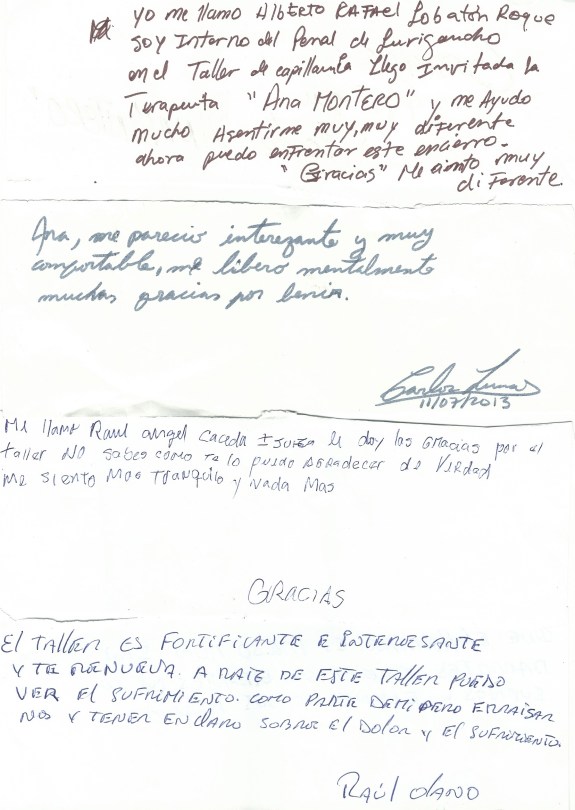 Yo me llamo Alberto Rafael Lobatón Roque
soy Interno del Penal de Lurigancho
en el Taller de capillania Llego Invitada la
Terapeuta "Ana MONTERO" y me Ayudo
mucho Asentirme muy, muy diferente
ahora puedo enfrentar este encierro.
"Gracias" Me siento muy
diferente
Ana, me parecio interezante y muy
comfortable, me libero mentalmente
muchas gracias por benir.
Carlos Lunas
11/07/2013
Me llamo Raul angel Caceda le doy las Gracias por el
taller NO Sabes como te lo puedo AGRADecer de VerdaD
me siento Mas Tranquilo y Nada Mas
GRACIAS
El TALLER ES FORTIFICANTE E INTERESANTE
Y TE RENUEVA. A RAIZ DE ESTE TALLER PUEDO
VER El SUFRIMIENTO. COMO PARTE DEMI PERO
NOS Y TENER EN CLARO SOBRE El DOLOR Y El SUFRIMIENTO.
RAÚL OLANO